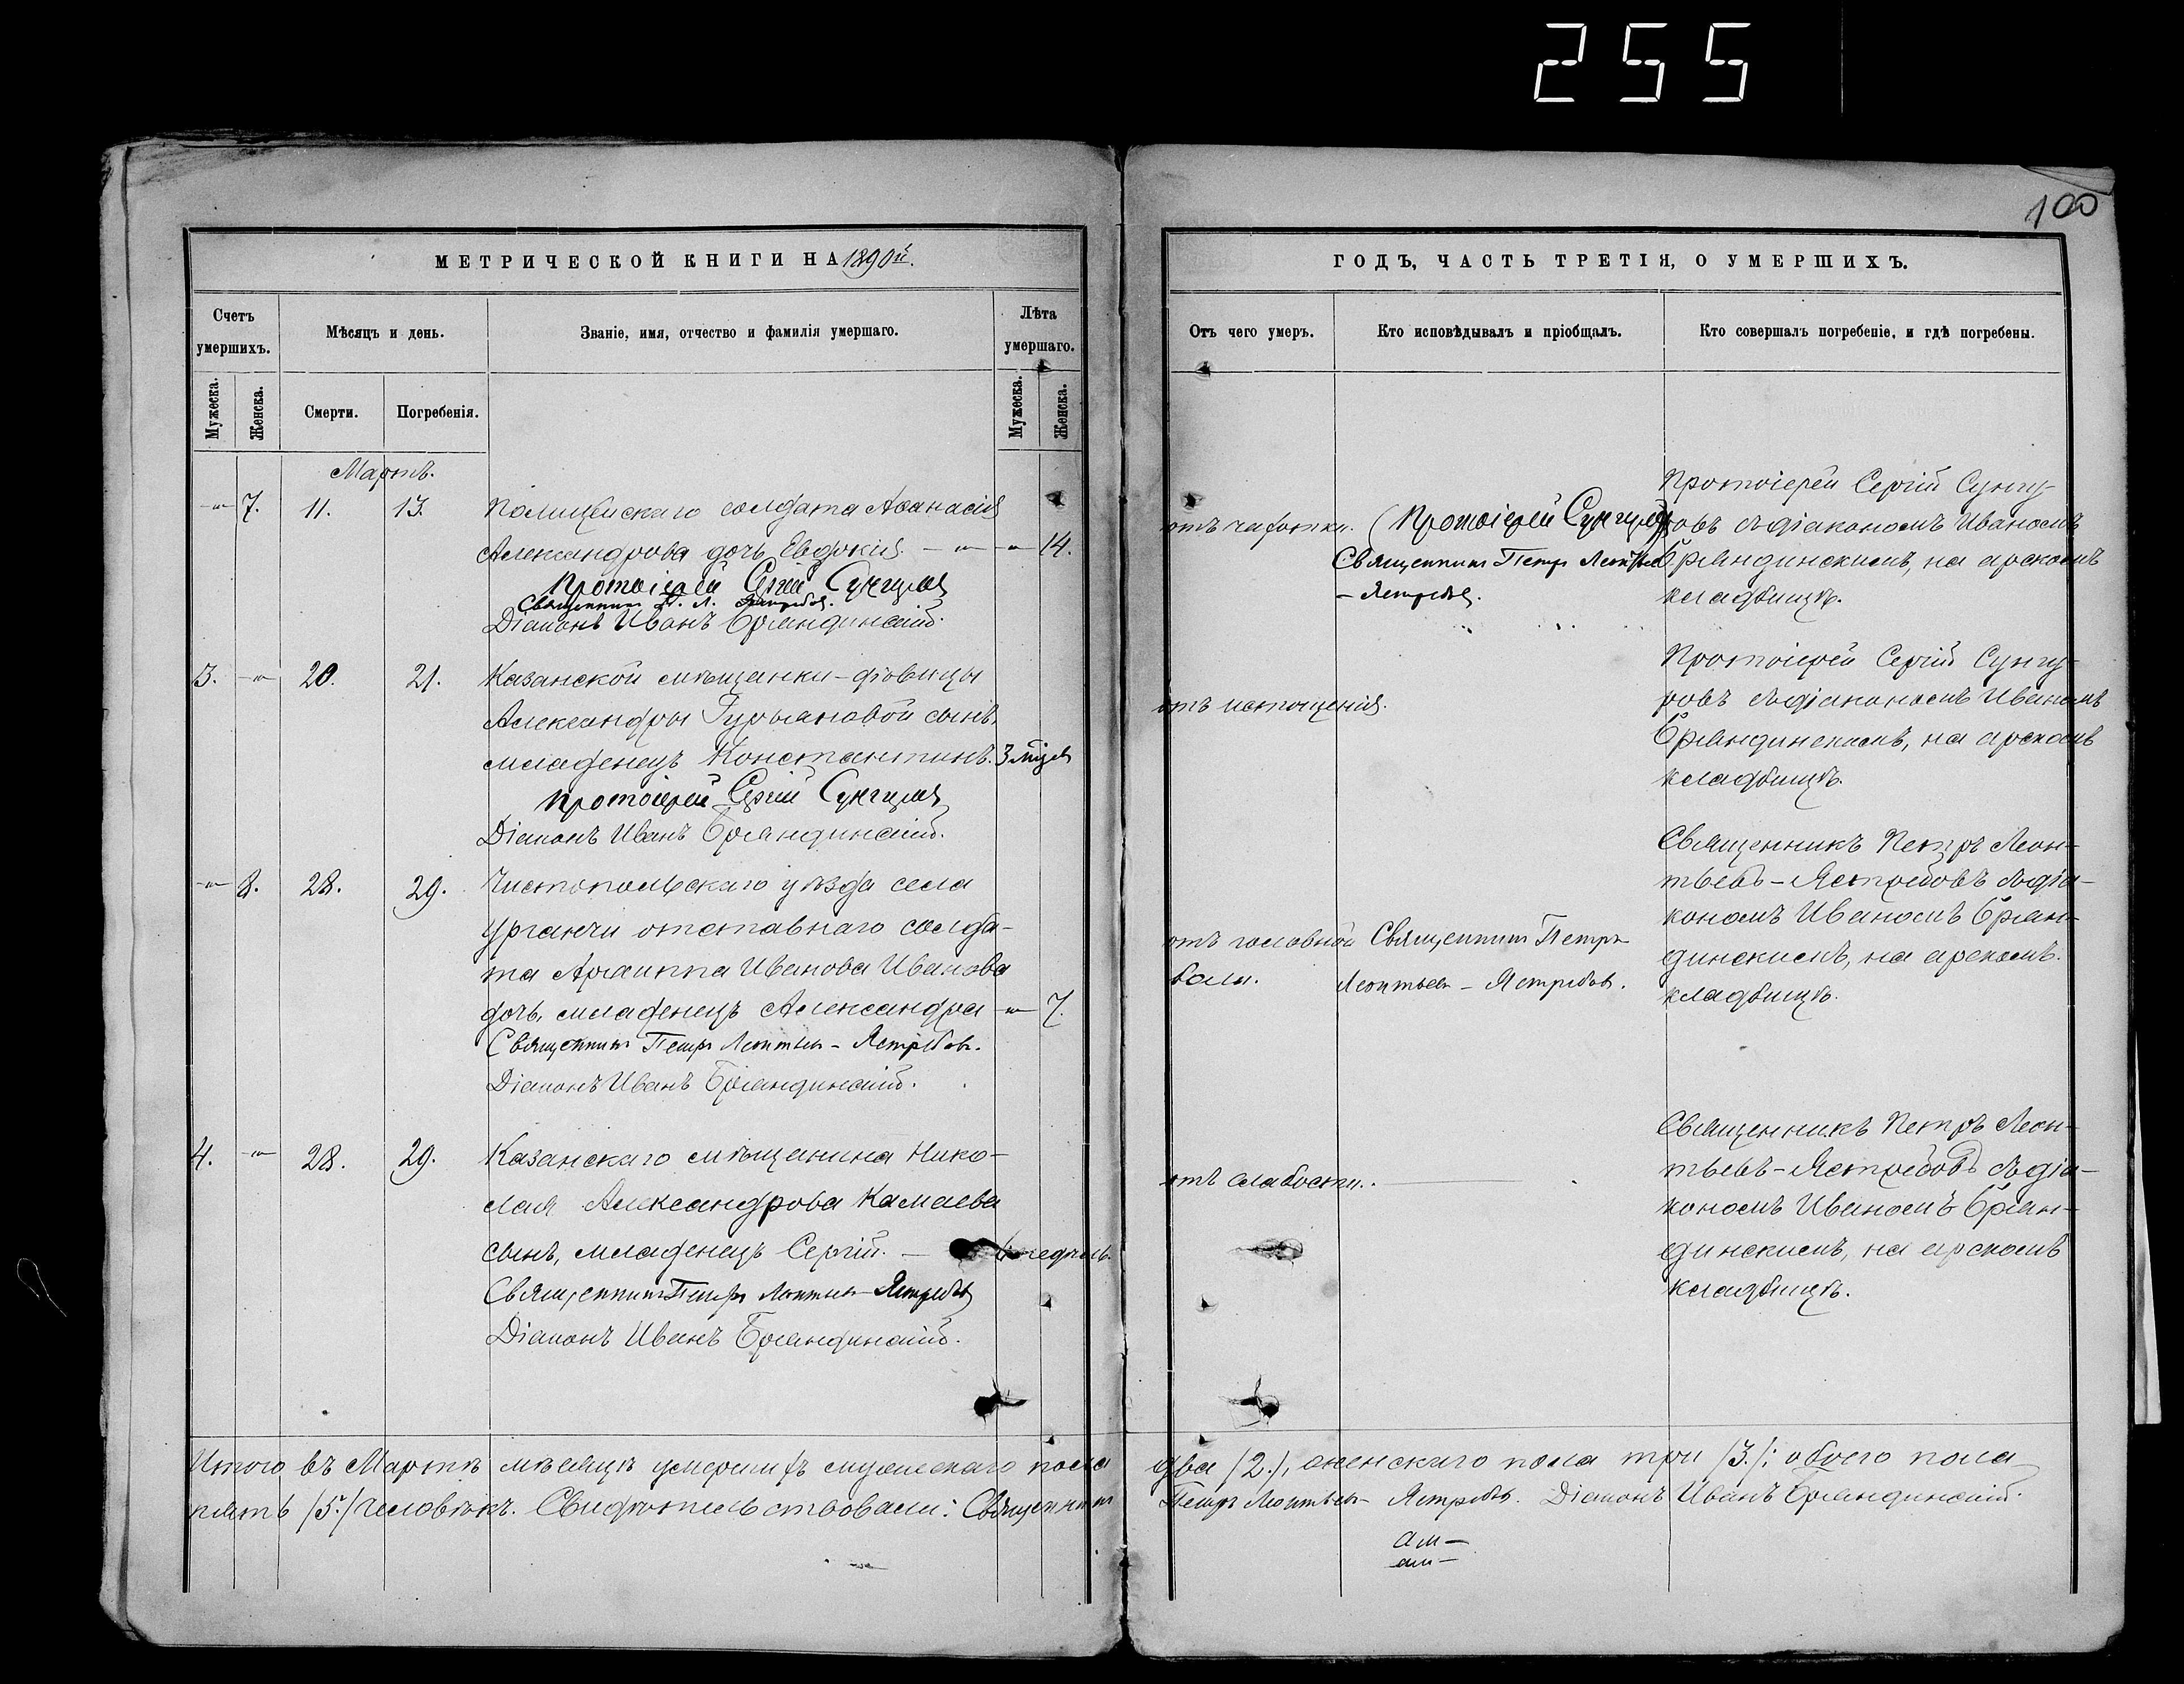 255
100
МЕТРИЧЕСКОЙ КНИГИ НА 1890й.
Счетъ умершихъ.
Мѣсяцъ и день.
Званіе, имя, отчество и фамилія умершаго.
Лѣта умершаго.
Мужеска.
Женска.
Смерти.
Погребенія.
Мужеска.
Женска.
Мартъ.
7. 11. 13. Полицейскаго солдата Аѳанасія
Александрова дочь Евдокія. 14.
Протоіерей Сергій Сунгуровъ
Священникъ П. Л. Ястребовъ.
Діаконъ Иванъ Бряндинскій.
3. 20. 21. Казанской мѣщанки-дѣвицы
Александры Гурьяновой сынъ,
младенецъ Константинъ. 3 мѣс
Протоіерей Сергій Сунгуровъ
Діаконъ Иванъ Бряндинскій.
8. 28. 29. Чистопольскаго уѣзда села
Урганчи отставнаго солда-
та Архиппа Иванова Иванова
дочь, младенецъ Александра 7.
Священникъ Петръ Леонтьевъ-Ястребовъ.
Діаконъ Иванъ Бряндинскій.
4. 28. 29. Казанскаго мѣщанина Нико-
лая Александрова Камаева
сынъ, младенецъ Сергій. недѣль
Священникъ Петръ Леонтьевъ-Ястребовъ
Діаконъ Иванъ Бряндинскій.
Итого въ Мартѣ мѣсяцѣ умершихъ мужескаго пола
пять /5./ человѣкъ. Свидѣтельствовали: Священникъ
ГОДЪ, ЧАСТЬ ТРЕТІЯ, О УМЕРШИХЪ.
Отъ чего умеръ.
Кто исповѣдывалъ и пріобщалъ.
Кто совершалъ погребеніе, и гдѣ погребены.
отъ чахотки.
Протоіерей Сунгуровъ
Священникъ Петръ Леонтьевъ
- Ястребовъ.
Протоіерей Сергій Сунгу-
ровъ съ діакономъ Иваномъ
Бряндинскимъ, на арскомъ
кладбищѣ.
отъ истощенія.
Протоіерей Сергій Сунгу-
ровъ съ діакономъ Иваномъ
Бряндинскимъ, на арскомъ
кладбищѣ.
отъ головной
боли.
Священникъ Петръ
Леонтьевъ - Ястребовъ.
Священникъ Петръ Леон-
тьевъ-Ястребовъ съ діа-
кономъ Иваномъ Брян-
динскимъ, на арскомъ.
кладбищѣ.
отъ слабости.
Священникъ Петръ Леон-
тьевъ-Ястребовъ съ діа-
кономъ Иваномъ Брян-
динскимъ, на арскомъ
кладбищѣ.
два /2./, женскаго пола три /3./; обоего пола
Петръ Леонтьевъ-Ястребовъ. Діаконъ Иванъ Бряндинскій.